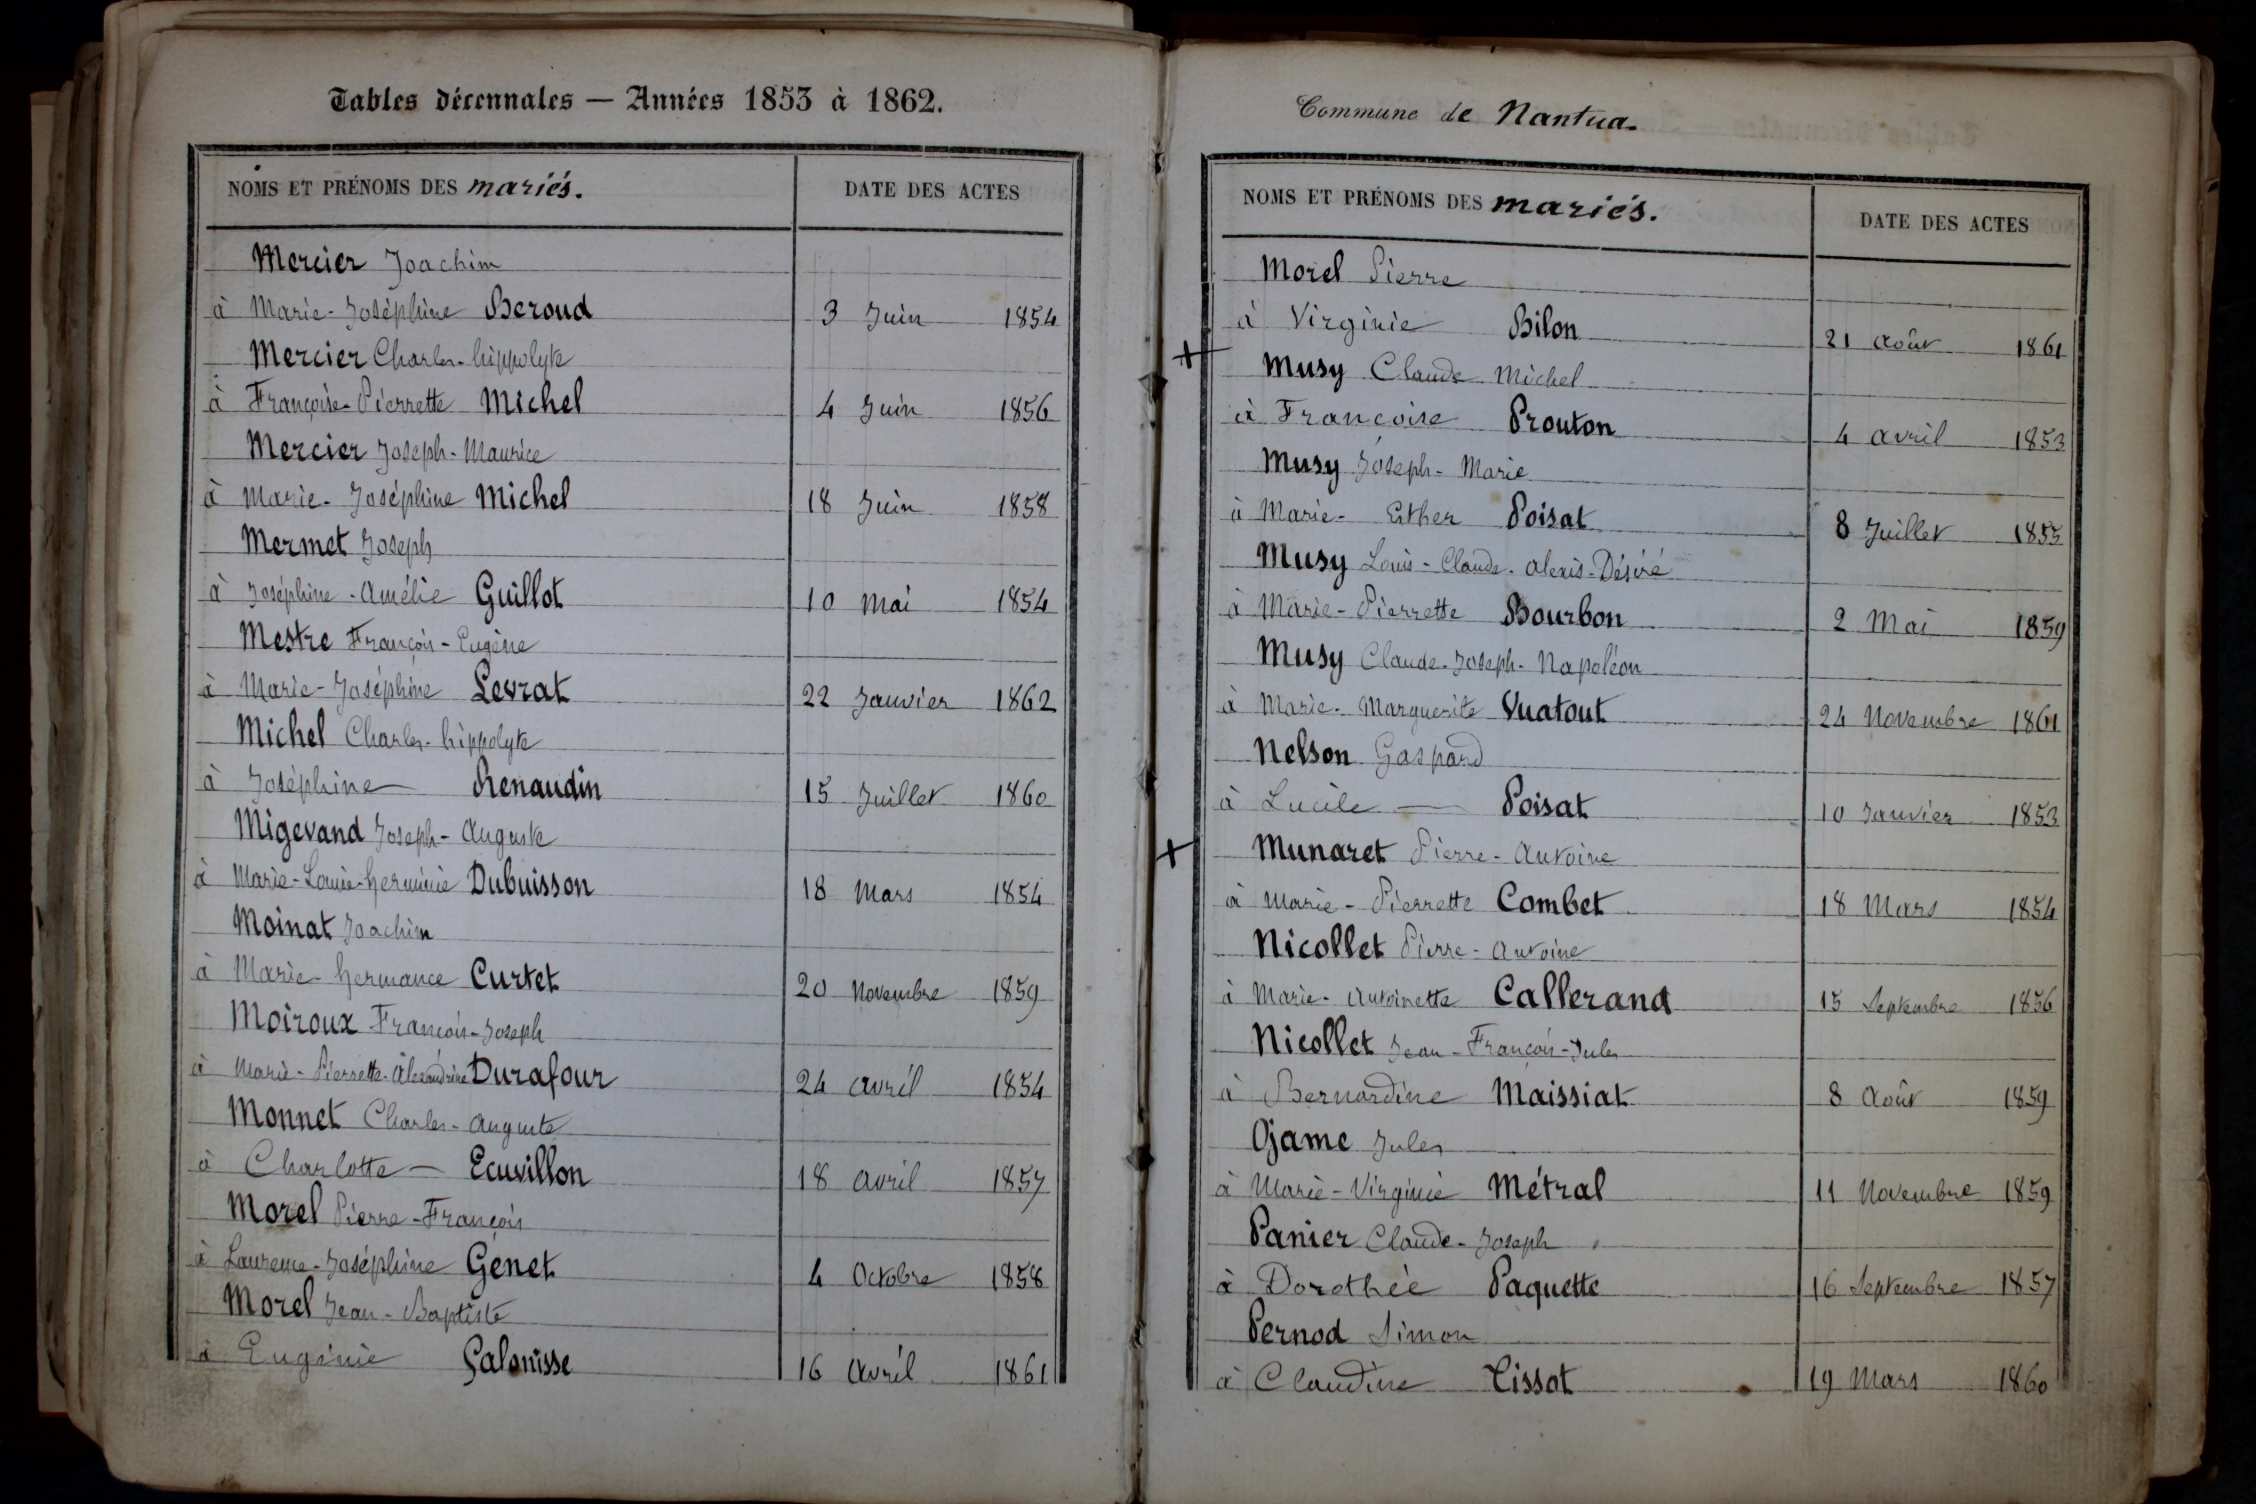 Tables décennales — Années 1853 à 1862.
NOMS ET PRÉNOMS DES mariés. DATE DES ACTES
Mercier Joachim
à Marie-Joséphine Beroud 3 Juin 1854
Mercier Charles-hippolyte
à Françoise-Pierrette Michel 4 Juin 1856
Mercier Joseph-Maurice
à Marie-Joséphine Michel 18 Juin 1858
Mermet Joseph
à Joséphine-Amélie Guillot 10 Mai 1854
Mestre François-Eugène
à Marie-Joséphine Levrat 22 Janvier 1862
Michel Charles-hippolyte
à Joséphine — Renaudin 15 Juillet 1860
Migevand Joseph-Auguste
à Marie-Louise-herminie Dubuisson 18 Mars 1854
Moinat Joachim
à Marie-hermance Curtet 20 Novembre 1859
Moiroux François-Joseph
à Marie-Pierrette-Alexandrine Durafour 24 avril 1854
Monnet Charles-Auguste
à Charlotte — Ecuvillon 18 avril 1857
Morel Pierre-François
à Laurence-Joséphine Génet 4 Octobre 1858
Morel Jean-Baptiste
à Eugénie Galonisse 16 Avril 1861
Commune de Nantua.
NOMS ET PRÉNOMS DES mariés. DATE DES ACTES
Morel Pierre
à Virginie Bilon 21 Août 1861
Musy Claude Michel
à Françoise Prouton 4 avril 1853
Musy Joseph-Marie
à Marie-Esther Poisat 8 Juillet 1855
Musy Louis-Claude-Alexis-Désiré
à Marie-Pierrette Bourbon 2 Mai 1859
Musy Claude-Joseph-Napoléon
à Marie-Marguerite Vuatout 24 Novembre 1861
Nelson Gaspard
à Lucile — Poisat 10 Janvier 1853
Munaret Pierre-Antoine
à Marie-Pierrette Combet 18 Mars 1854
Nicollet Pierre-Antoine
à Marie-Antoinette Callerand 15 Septembre 1856
Nicollet Jean-François-Jules
à Bernardine Maissiat 8 Août 1859
Ojame Jules
à Marie-Virginie Métral 11 Novembre 1859
Panier Claude-Joseph
à Dorothée Paquette 16 Septembre 1857
Pernod Simon
à Claudine Tissot 19 Mars 1860